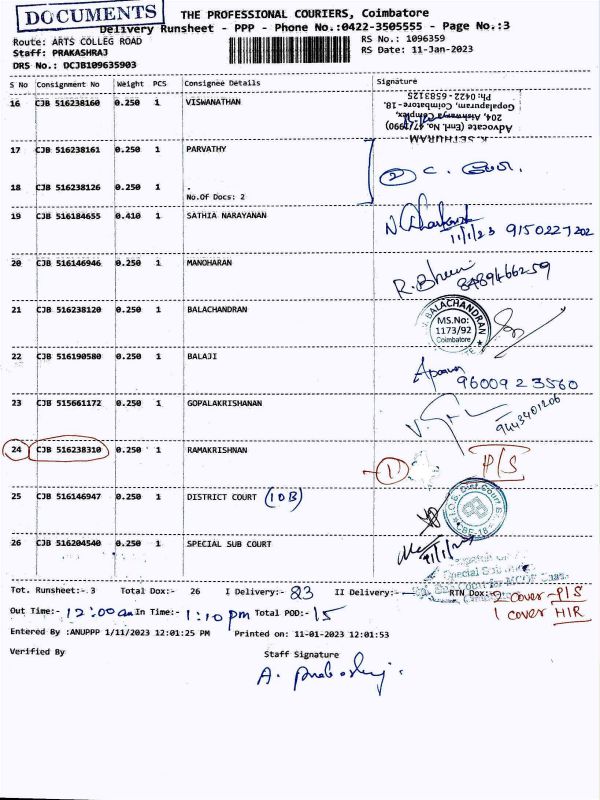 DOCUMENTS
THE PROFESSIONAL COURIERS, Coimbatore
Delivery Runsheet - PPP - Phone No.:0422-3505555 - Page No.:3
Route: ARTS COLLEG ROAD
RS No.: 1096359
Staff: PRAKASHRAJ
RS Date: 11-Jan-2023
DRS No.: DCJB109635903
S No Consignment No Weight PCS Consignee Details Signature
16 CJB 516238160 0.250 1 VISWANATHAN
K. SETHURAM
Advocate (Enrl. No. 47/1990)
204, Aishwarya Complex,
Gopalapuram, Coimbatore-18.
Ph: 0422-6583125
17 CJB 516238161 0.250 1 PARVATHY
18 CJB 516238126 0.250 1 .
No.Of Docs: 2
2 C.
19 CJB 516184655 0.410 1 SATHIA NARAYANAN
11/1/23 9150227202
20 CJB 516146946 0.250 1 MANOHARAN
8489466259
21 CJB 516238120 0.250 1 BALACHANDRAN
V. BALACHANDRAN
MS.No:
1173/92
Coimbatore
22 CJB 516190580 0.250 1 BALAJI
9600923560
23 CJB 515661172 0.250 1 GOPALAKRISHANAN
9443401206
24 CJB 516238310 0.250 1 RAMAKRISHNAN
1 P/S
25 CJB 516146947 0.250 1 DISTRICT COURT (IOB)
26 CJB 516204540 0.250 1 SPECIAL SUB COURT
Tot. Runsheet:- 3 Total Dox:- 26 I Delivery:- 23 II Delivery:- RTN Dox:- 2 cover - P/S
1 cover HIR
Out Time:- 12:00 am In Time:- 1:10 pm Total POD:- 15
Entered By :ANUPPP 1/11/2023 12:01:25 PM Printed on: 11-01-2023 12:01:53
Verified By Staff Signature